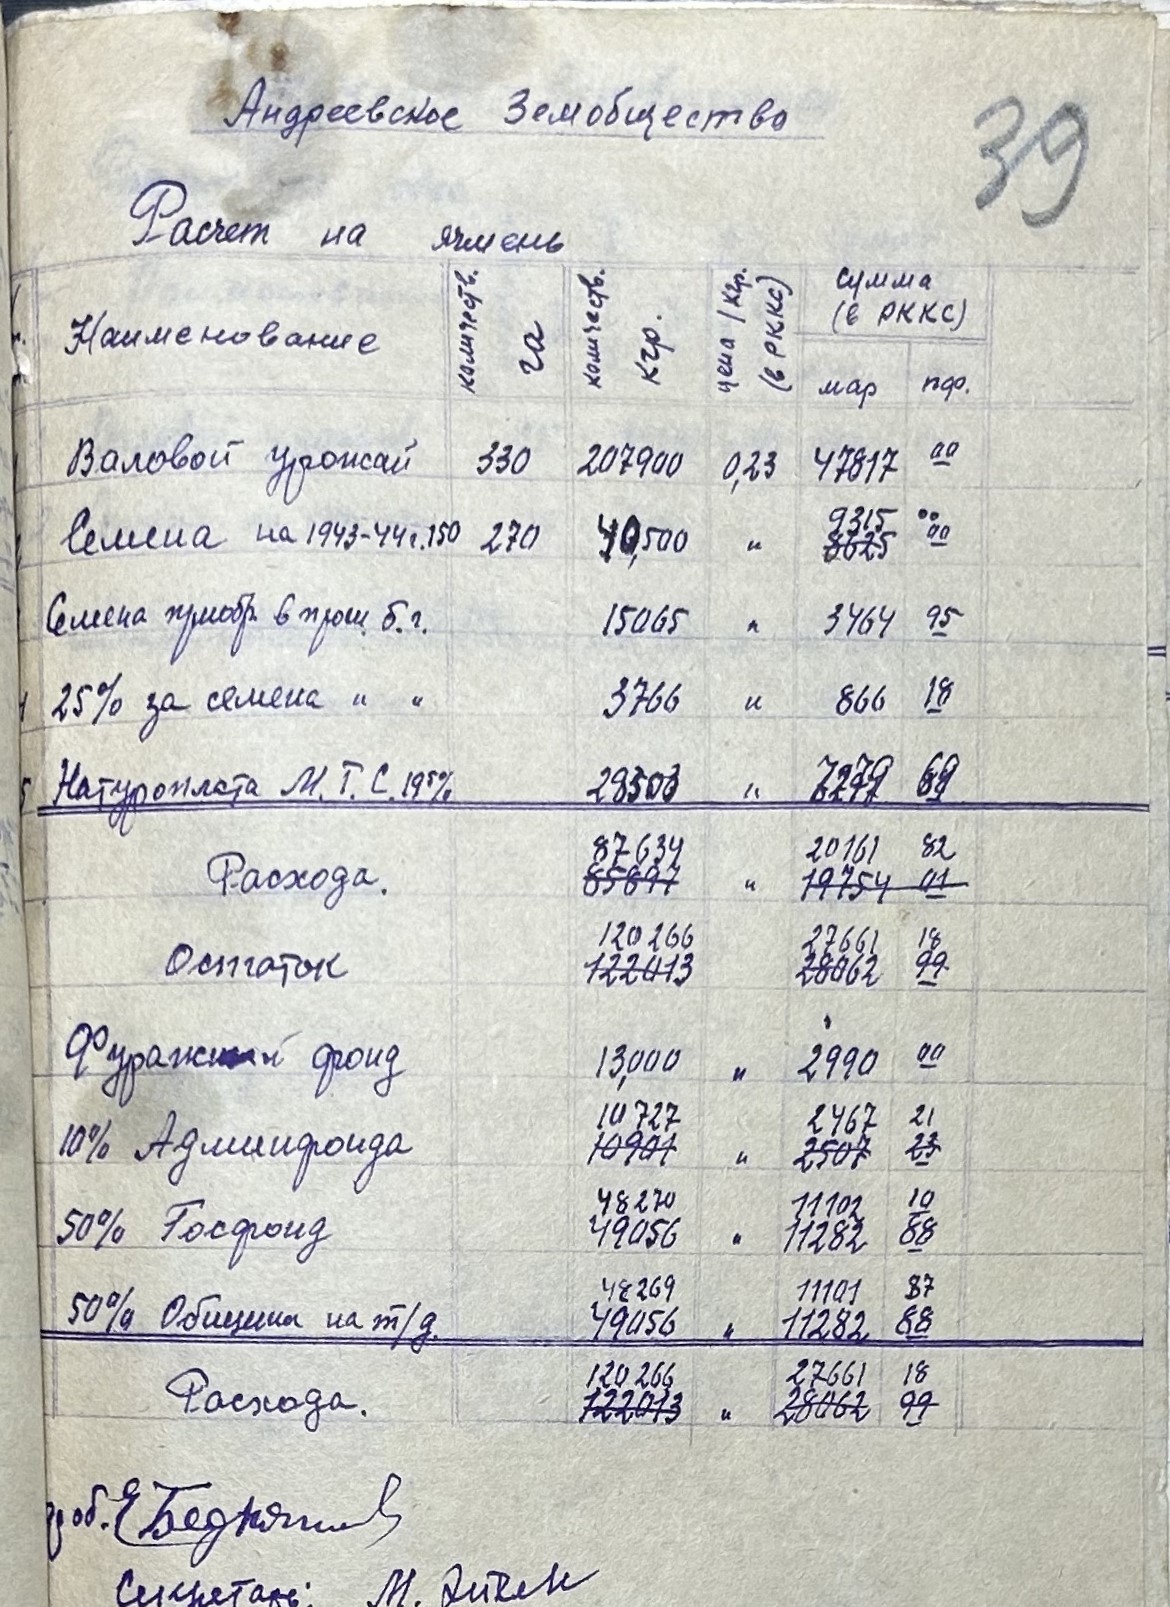 39
Андреевское Земобщество
Расчет на ячмень
Наименование количеств. га количеств. кгр. цена 1 кгр. (в РККС) сумма (в РККС) мар пф.
Валовой урожай 330 207900 0,23 47817 00
9315 00
Семена на 1943-44 г. 150 270 40,500 " 8625 00
Семена приобр. в прош. б. г. 15065 " 3464 95
4 25% за семена " " 3766 " 866 18
5 Натуроплата М.Т.С. 195% 28303 "
87634 20161 82
Расхода. 85897 " 19754 01
120266 27661 18
Остаток 122013 28062 99
Фуражный фонд 13,000 " 2990 00
10727 2467 21
10% Админфонда 10901 " 2507 23
48270 11102 10
50% Госфонд 49056 " 11282 88
48269 11101 87
50% Общины на т/д. 49056 " 11282 88
120266 27661 18
Расхода. 122013 " 28062 99
Секретарь: М.